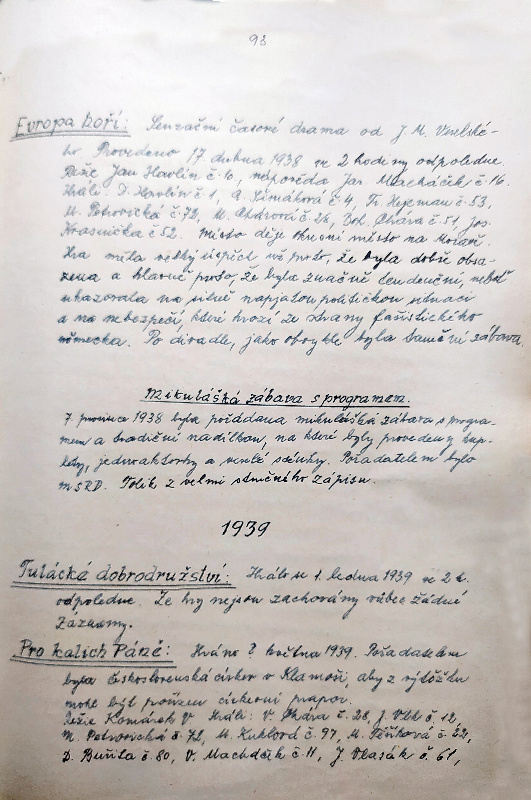 93
Evropa hoří: Senzační časové drama od J. M. Veselské-
ho Provedeno 17 dubna 1938 ve 2 hodiny odpoledne.
Režie Jan Havlín č. 6, nápověda Jar. Macháček č. 16.
Hráli: D. Havlín č. 1, A. Šimáková č. 4, Fr. Hejzman č. 53,
M. Petrovická č. 72, M. č. 26, Boh. Chára č. 51, Jos.
Krasnička č. 52. Místo děje okresní místo na Moravě.
Hra měla velký úspěch už proto, že byla dobře obsa-
zena a hlavně proto, že byla značně tendenční, neboť
ukazovala na silně napjatou politickou situaci
a na nebezpečí, které hrozí ze strany fašistického
německa. Po divadle, jako obvykle byla taneční zábava.
Mikulášská zábava s programem.
7 prosince 1938 byla pořádána mikulášská zábava s progra-
mem a tradiční nadílkou, na které byly provedeny kup-
lety, jednoaktovky a veselé scénky. Pořadatelem bylo
MSRD. Tolik z velmi stručného zápisu.
1939
Tulácké dobrodružství: Hrálo se 1. ledna 1939 ve 2 h.
odpoledne. Ze hry nejsou zachovány vůbec žádné
záznamy.
Pro kalich Páně: Hráno ? května 1939. Pořadatelem
byla Československá církev v Klamoši, aby z výtěžku
mohl být pořízen církevní prapor.
Režie Komárek V. Hráli: V. Chára č. 28, J. Vlk č. 12,
M. Petrovická č. 72, M. Kuklová č. 97, M. č. 22,
D. Buňila č. 80, V. Macháček č. 11, J. Vlasák č. 61,